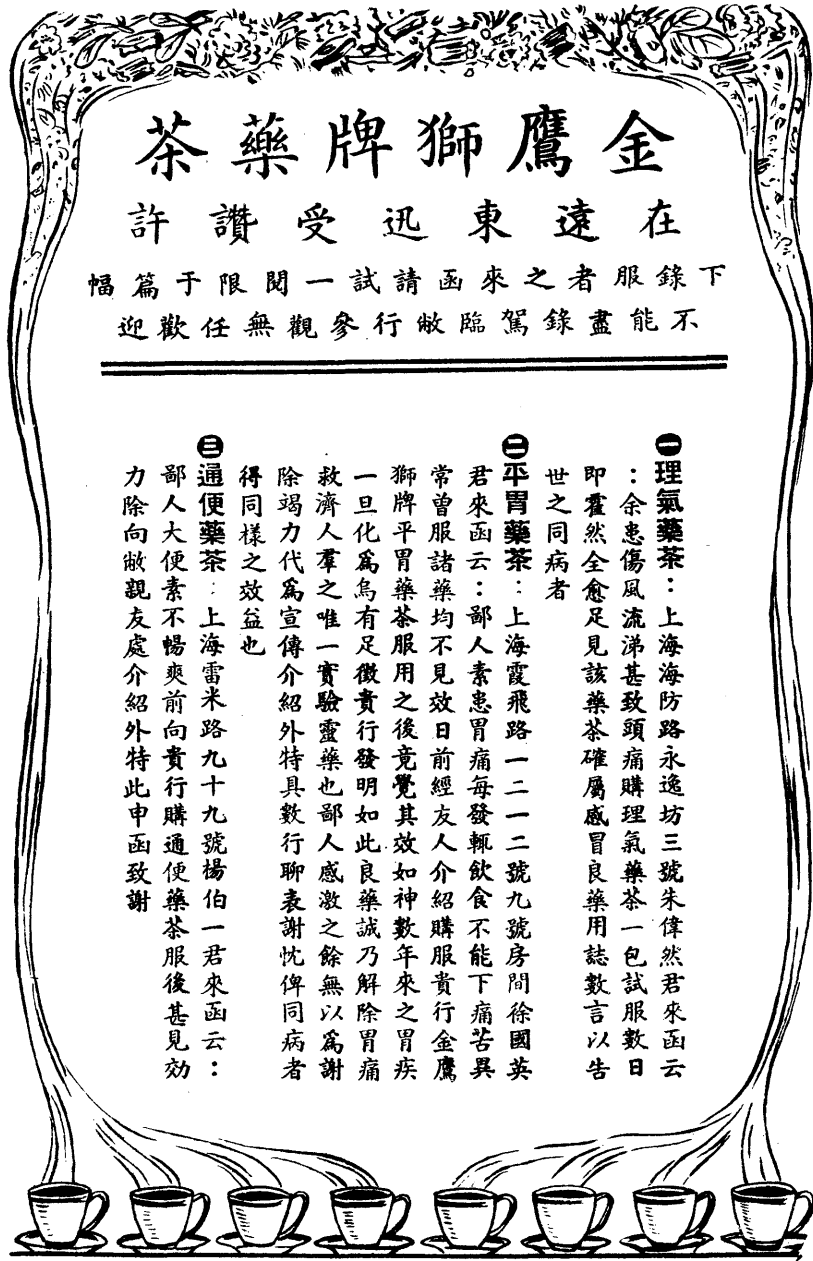 金鷹獅牌藥茶
在遠東迅受讚許
下錄服者之來函請試一閱限于篇幅
不能盡錄駕臨敝行參觀無任歡迎
㊀理氣藥茶：上海海防路永逸坊三號朱偉然君來函云
：余患傷風流涕甚致頭痛購理氣藥茶一包試服數日
即霍然全愈足見該藥茶確屬感冒良藥用誌數言以告
世之同病者
㊁平胃藥茶：上海霞飛路一二一二號九號房間徐國英
君來函云：鄙人素患胃痛每發輒飲食不能下痛苦異
常曾服諸藥均不見效日前經友人介紹購服貴行金鷹
獅牌平胃藥茶服用之後竟覺其效如神數年來之胃疾
一旦化為烏有足徵貴行發明如此良藥誠乃解除胃痛
救濟人羣之唯一實驗靈藥也鄙人感激之餘無以為謝
除竭力代為宣傳介紹外特具數行聊表謝忱俾同病者
得同樣之效益也
㊂通便藥茶：上海雷米路九十九號楊伯一君來函云：
鄙人大便素不暢爽前向貴行購通便藥茶服後甚見効
力除向敝親友處介紹外特此申函致謝